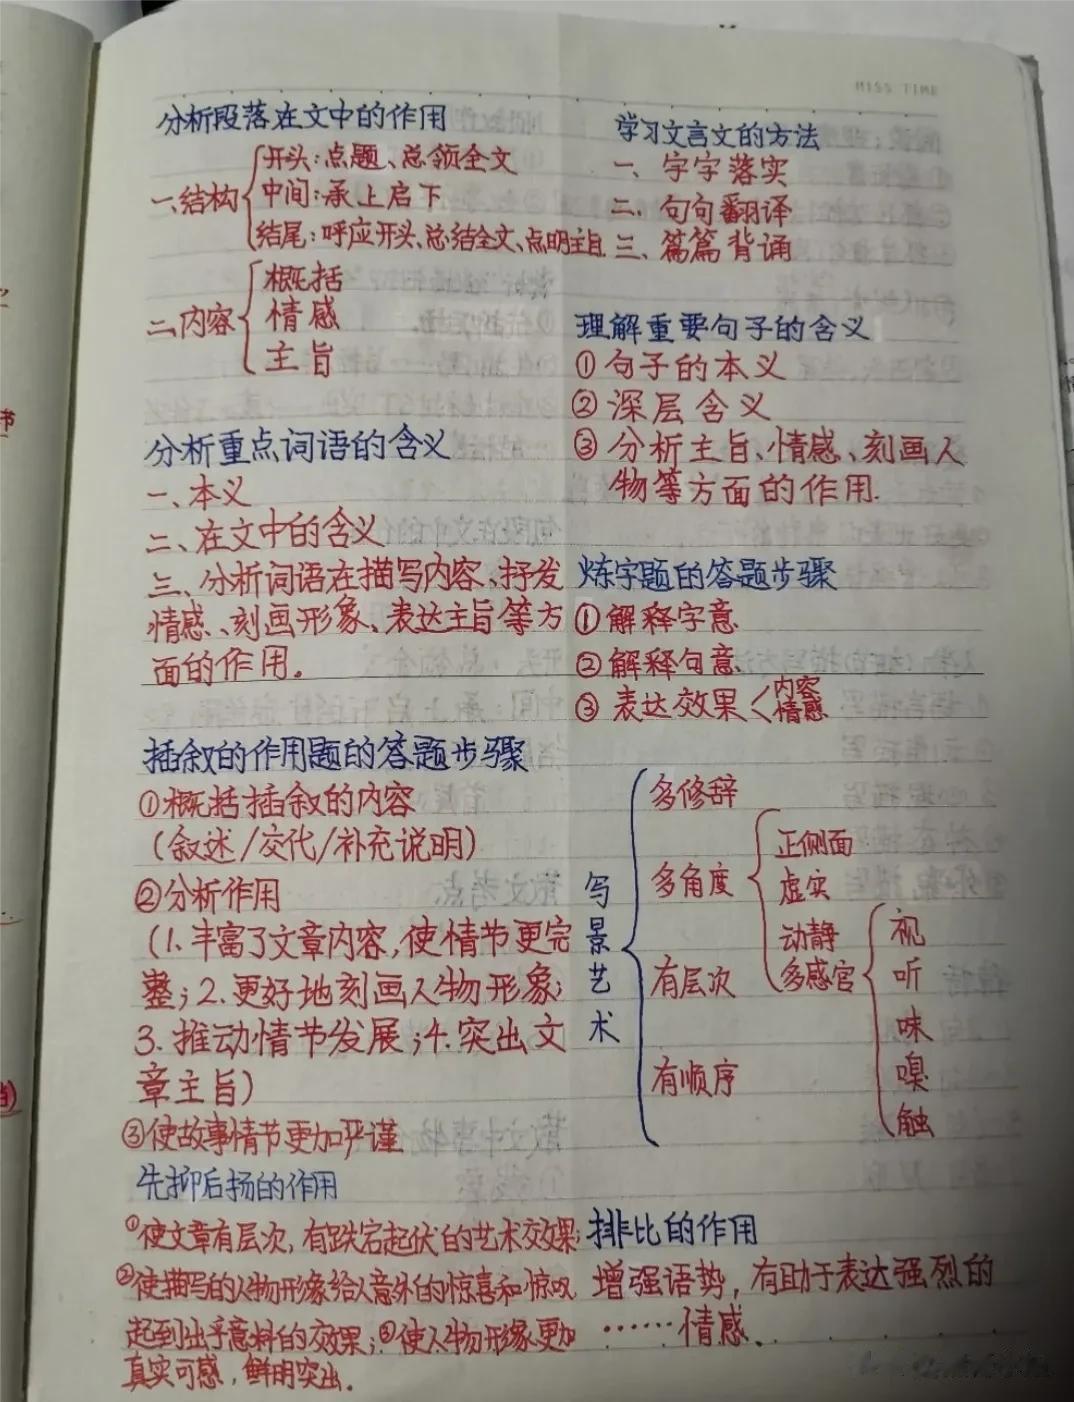 MISS TIME
分析段落在文中的作用
一、结构
开头：点题、总领全文
中间：承上启下
结尾：呼应开头、总结全文、点明主旨
二、内容
概括
情感
主旨
分析重点词语的含义
一、本义
二、在文中的含义
三、分析词语在描写内容、抒发
情感、刻画形象、表达主旨等方
面的作用。
插叙的作用题的答题步骤
①概括插叙的内容
（叙述/交代/补充说明）
②分析作用
（1.丰富了文章内容，使情节更完
整；2.更好地刻画人物形象；
3.推动情节发展；4.突出文
章主旨）
③使故事情节更加严谨
先抑后扬的作用
①使文章有层次，有跌宕起伏的艺术效果；
②使描写的人物形象给人意外的惊喜和惊叹
起到出乎意料的效果；③使人物形象更加
真实可感，鲜明突出.
学习文言文的方法
一、字字落实
二、句句翻译
三、篇篇背诵
理解重要句子的含义
①句子的本义
②深层含义
③分析主旨、情感、刻画人
物等方面的作用.
炼字题的答题步骤
①解释字意
②解释句意
③表达效果
内容
情感
写景艺术
多修辞
多角度
正侧面
虚实
动静
多感官
视
听
味
嗅
触
有层次
有顺序
排比的作用
增强语势，有助于表达强烈的
……情感、